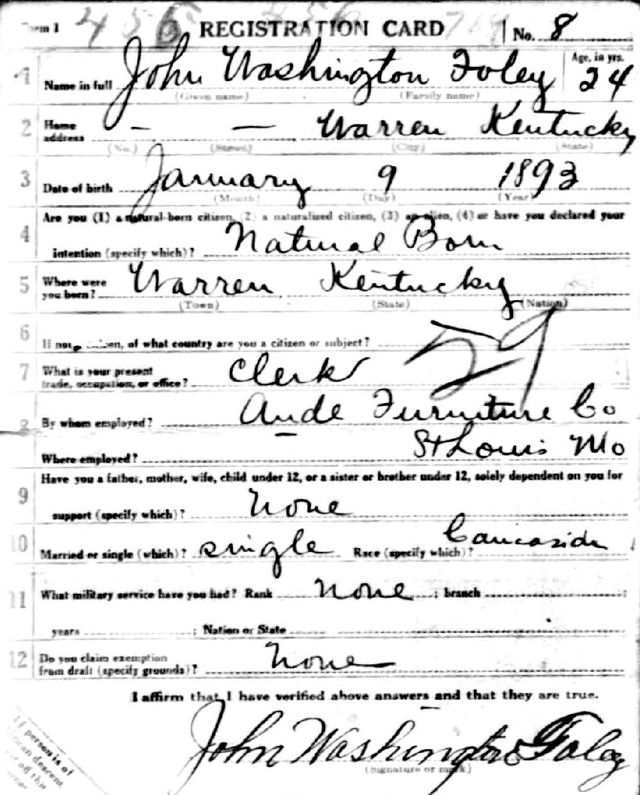 Form 1 456 REGISTRATION CARD No. 8
1 Name in full John Washington Foley Age, in yrs. 24
(Given name) (Family name)
2 Home address — — Warren Kentucky
(No.) (Street) (City) (State)
3 Date of birth January 9 1893
(Month) (Day) (Year)
4 Are you (1) a natural-born citizen, (2) a naturalized citizen, (3) an alien, (4) or have you declared your
intention (specify which)? Natural Born
5 Where were you born? Warren Kentucky
(Town) (State) (Nation)
6 If not a citizen, of what country are you a citizen or subject?
29
7 What is your present trade, occupation, or office? Clerk
8 By whom employed? Aude Furniture Co
Where employed? — St Louis Mo
9 Have you a father, mother, wife, child under 12, or a sister or brother under 12, solely dependent on you for
support (specify which)? none
10 Married or single (which)? single Race (specify which)? Caucasian
11 What military service have you had? Rank none ; branch
years ; Nation or State
12 Do you claim exemption from draft (specify grounds)? none
I affirm that I have verified above answers and that they are true.
John Washington Foley
(Signature or mark)
If person is of
African descent
off this